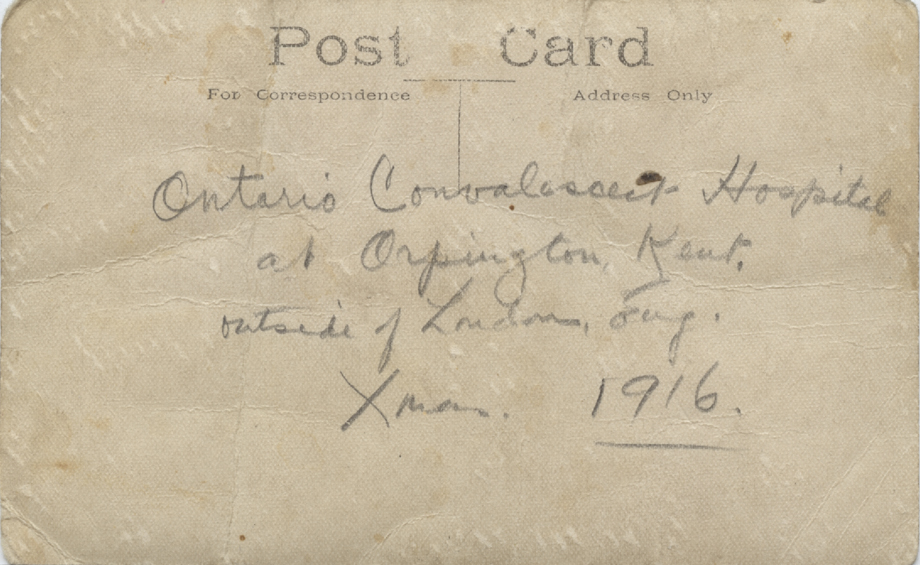 Post Card
For Correspondence Address Only
Ontario Convalescent Hospital
at Orpington, Kent,
outside of London, Eng.
Xmas. 1916.